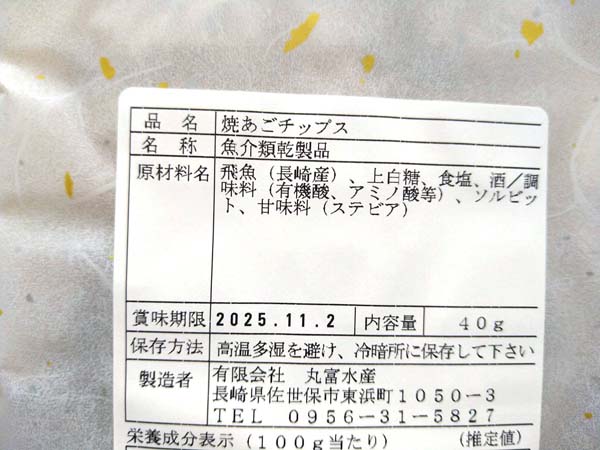 品名 焼あごチップス
名称 魚介類乾製品
原材料名 飛魚（長崎産）、上白糖、食塩、酒／調
味料（有機酸、アミノ酸等）、ソルビッ
ト、甘味料（ステビア）
賞味期限 2025.11.2 内容量 40g
保存方法 高温多湿を避け、冷暗所に保存して下さい
製造者 有限会社 丸富水産
長崎県佐世保市東浜町1050-3
TEL 0956-31-5827
栄養成分表示（100g当たり） （推定値）